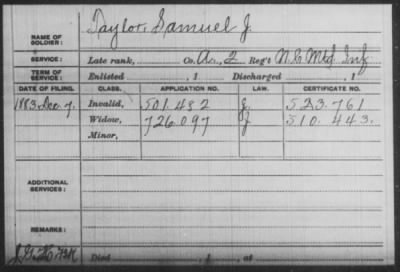 NAME OF SOLDIER: Taylor, Samuel J.
SERVICE: Late rank, Co. A, 2 Reg't N.C. Mtd. Inf
TERM OF SERVICE: Enlisted , 1 Discharged , 1
DATE OF FILING. CLASS. APPLICATION NO. LAW. CERTIFICATE NO.
1883 Dec. 7. Invalid, 501.482 J. 523.761
Widow, 726.097 J 510.443.
Minor,
ADDITIONAL SERVICES:
REMARKS:
Died , 1 , at